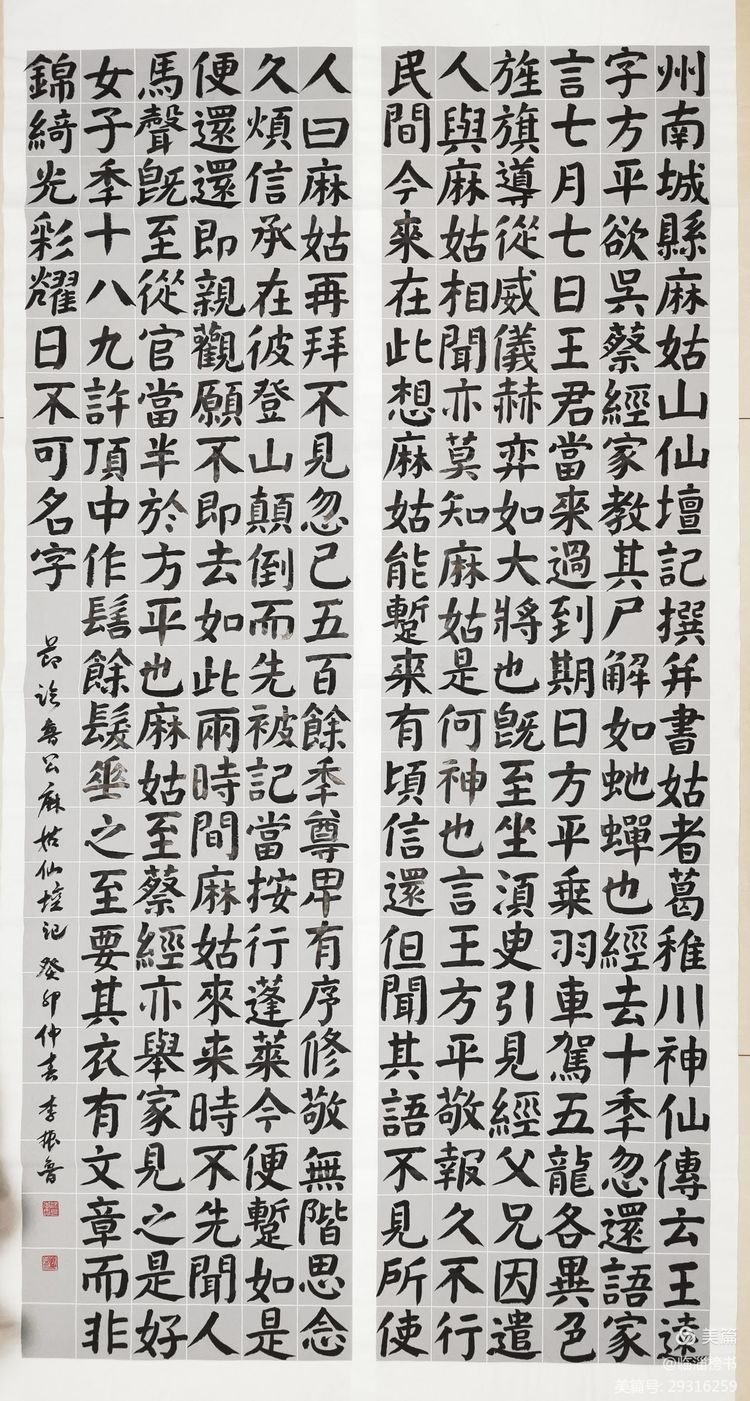 州南城縣麻姑山仙壇記撰并書姑者葛稚川神仙傳云王遠
字方平欲吳蔡經家教其尸解如虵蟬也經去十秊忽還語家
言七月七日王君當來過到期日方平乗羽車駕五龍各異色
旌旗導從威儀赫弈如大將也旣至坐湏臾引見經父兄因遣
人與麻姑相聞亦莫知麻姑是何神也言王方平敬報久不行
民間今來在此想麻姑能蹔來有頃信還但聞其語不見所使
人曰麻姑再拜不見忽已五百餘秊尊卑有序修敬無階思念
久煩信承在彼登山顛倒而先被記當按行蓬萊今便蹔如是
便還還即親觀願不即去如此兩時間麻姑來来時不先聞人
馬聲旣至從官當半於方平也麻姑至蔡經亦舉家見之是好
女子秊十八九許頂中作髻餘髮垂之至要其衣有文章而非
錦綺光彩耀日不可名字
節臨魯公麻姑仙壇記 癸卯仲春 李振魯
美篇
@临淄榜书
美篇号: 29316259